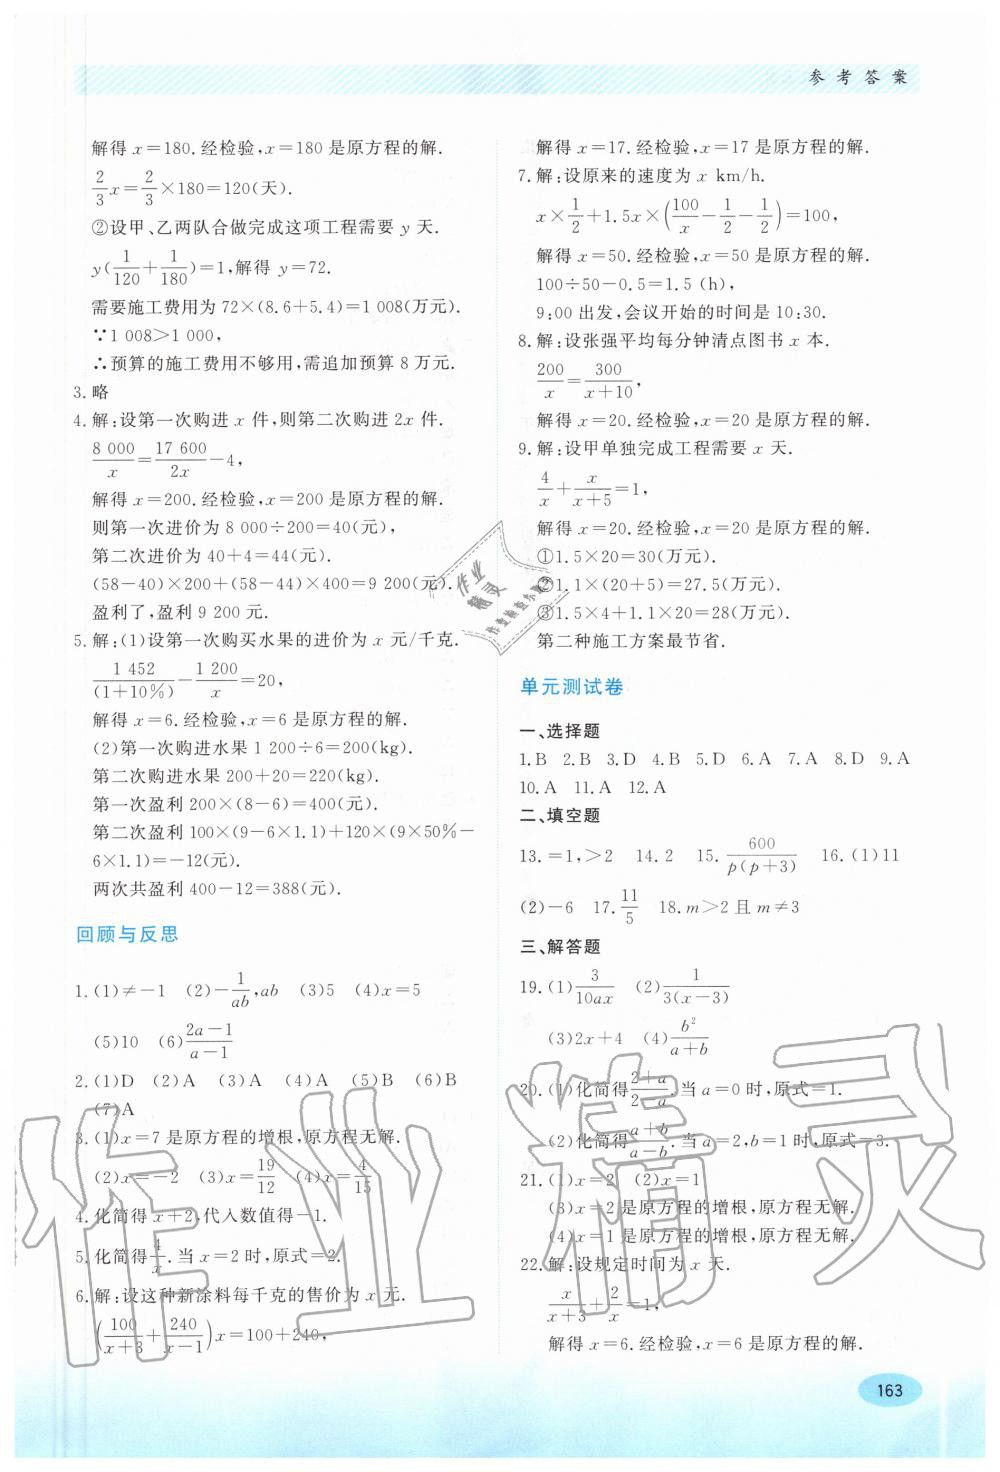 参考答案
解得 x=180.经检验,x=180 是原方程的解.
2/3 x=2/3×180=120(天).
②设甲、乙两队合做完成这项工程需要 y 天.
y(1/120+1/180)=1,解得 y=72.
需要施工费用为 72×(8.6+5.4)=1 008(万元).
∵1 008>1 000,
∴预算的施工费用不够用,需追加预算 8 万元.
3.略
4.解:设第一次购进 x 件,则第二次购进 2x 件.
8 000/x=17 600/2x-4,
解得 x=200.经检验,x=200 是原方程的解.
则第一次进价为 8 000÷200=40(元),
第二次进价为 40+4=44(元).
(58-40)×200+(58-44)×400=9 200(元).
盈利了,盈利 9 200 元.
5.解:(1)设第一次购买水果的进价为 x 元/千克.
1 452/(1+10%)-1 200/x=20,
解得 x=6.经检验,x=6 是原方程的解.
(2)第一次购进水果 1 200÷6=200(kg).
第二次购进水果 200+20=220(kg).
第一次盈利 200×(8-6)=400(元).
第二次盈利 100×(9-6×1.1)+120×(9×50%-
6×1.1)=-12(元).
两次共盈利 400-12=388(元).
回顾与反思
1.(1)≠-1 (2)-1/ab,ab (3)5 (4)x=5
(5)10 (6)2a-1/a-1
2.(1)D (2)A (3)A (4)A (5)B (6)B
(7)A
3.(1)x=7 是原方程的增根,原方程无解.
(2)x=-2 (3)x=19/12 (4)x=4/15
4.化简得 x+2,代入数值得-1.
5.化简得4/x.当 x=2 时,原式=2.
6.解:设这种新涂料每千克的售价为 x 元.
(100/x+3+240/x-1)x=100+240,
解得 x=17.经检验,x=17 是原方程的解.
7.解:设原来的速度为 x km/h.
x×1/2+1.5x×(100/x-1/2-1/2)=100,
解得 x=50.经检验,x=50 是原方程的解.
100÷50-0.5=1.5 (h),
9:00 出发,会议开始的时间是 10:30.
8.解:设张强平均每分钟清点图书 x 本.
200/x=300/x+10,
解得 x=20.经检验,x=20 是原方程的解.
9.解:设甲单独完成工程需要 x 天.
4/x+x/x+5=1,
解得 x=20.经检验,x=20 是原方程的解.
①1.5×20=30(万元).
②1.1×(20+5)=27.5(万元).
③1.5×4+1.1×20=28(万元).
第二种施工方案最节省.
单元测试卷
一、选择题
1.B 2.B 3.D 4.B 5.D 6.A 7.A 8.D 9.A
10.A 11.A 12.A
二、填空题
13.=1,>2 14.2 15.600/p(p+3) 16.(1)11
(2)-6 17.11/5 18.m>2 且 m≠3
三、解答题
19.(1)3/10ax (2)1/3(x-3)
(3)2x+4 (4)b²/a+b
20.(1)化简得2+a/2-a.当 a=0 时,原式=1.
(2)化简得a+b/a-b.当 a=2,b=1 时,原式=3.
21.(1)x=2 (2)x=1
(3)x=2 是原方程的增根,原方程无解.
(4)x=1 是原方程的增根,原方程无解.
22.解:设规定时间为 x 天.
x/x+3+2/x=1,
解得 x=6.经检验,x=6 是原方程的解.
163
作业精灵